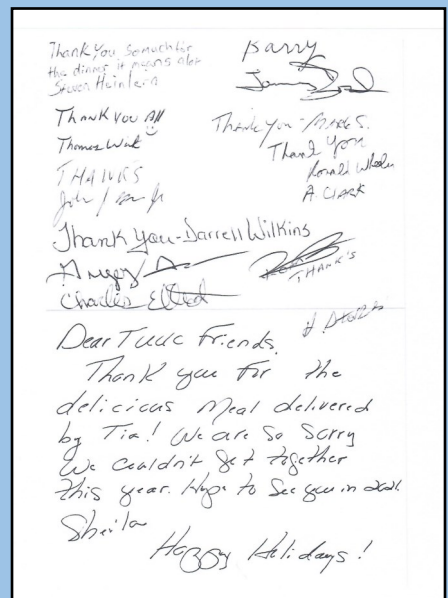 Thank you so much for
the dinner it means alot
Steven Heinlein
Barry
James
Thank You All
Thomas
Thank you - Mark S.
Thank you
Ronald Wheeler
A. CLARK
THANKS
John
Thank you - Darrell Wilkins
THANK'S
Charles
Dear TUUC Friends,
Thank you for the
delicious meal delivered
by Tia! We are so sorry
we couldn't get together
this year. Hope to see you in 2021.
Sheila
Happy Holidays!